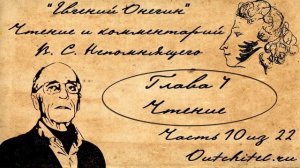 "Евгений Онегин"
Чтение и комментарий
В. С. Непомнящего
Глава 7
Чтение
Часть 10 из 22
Outchitel.ru